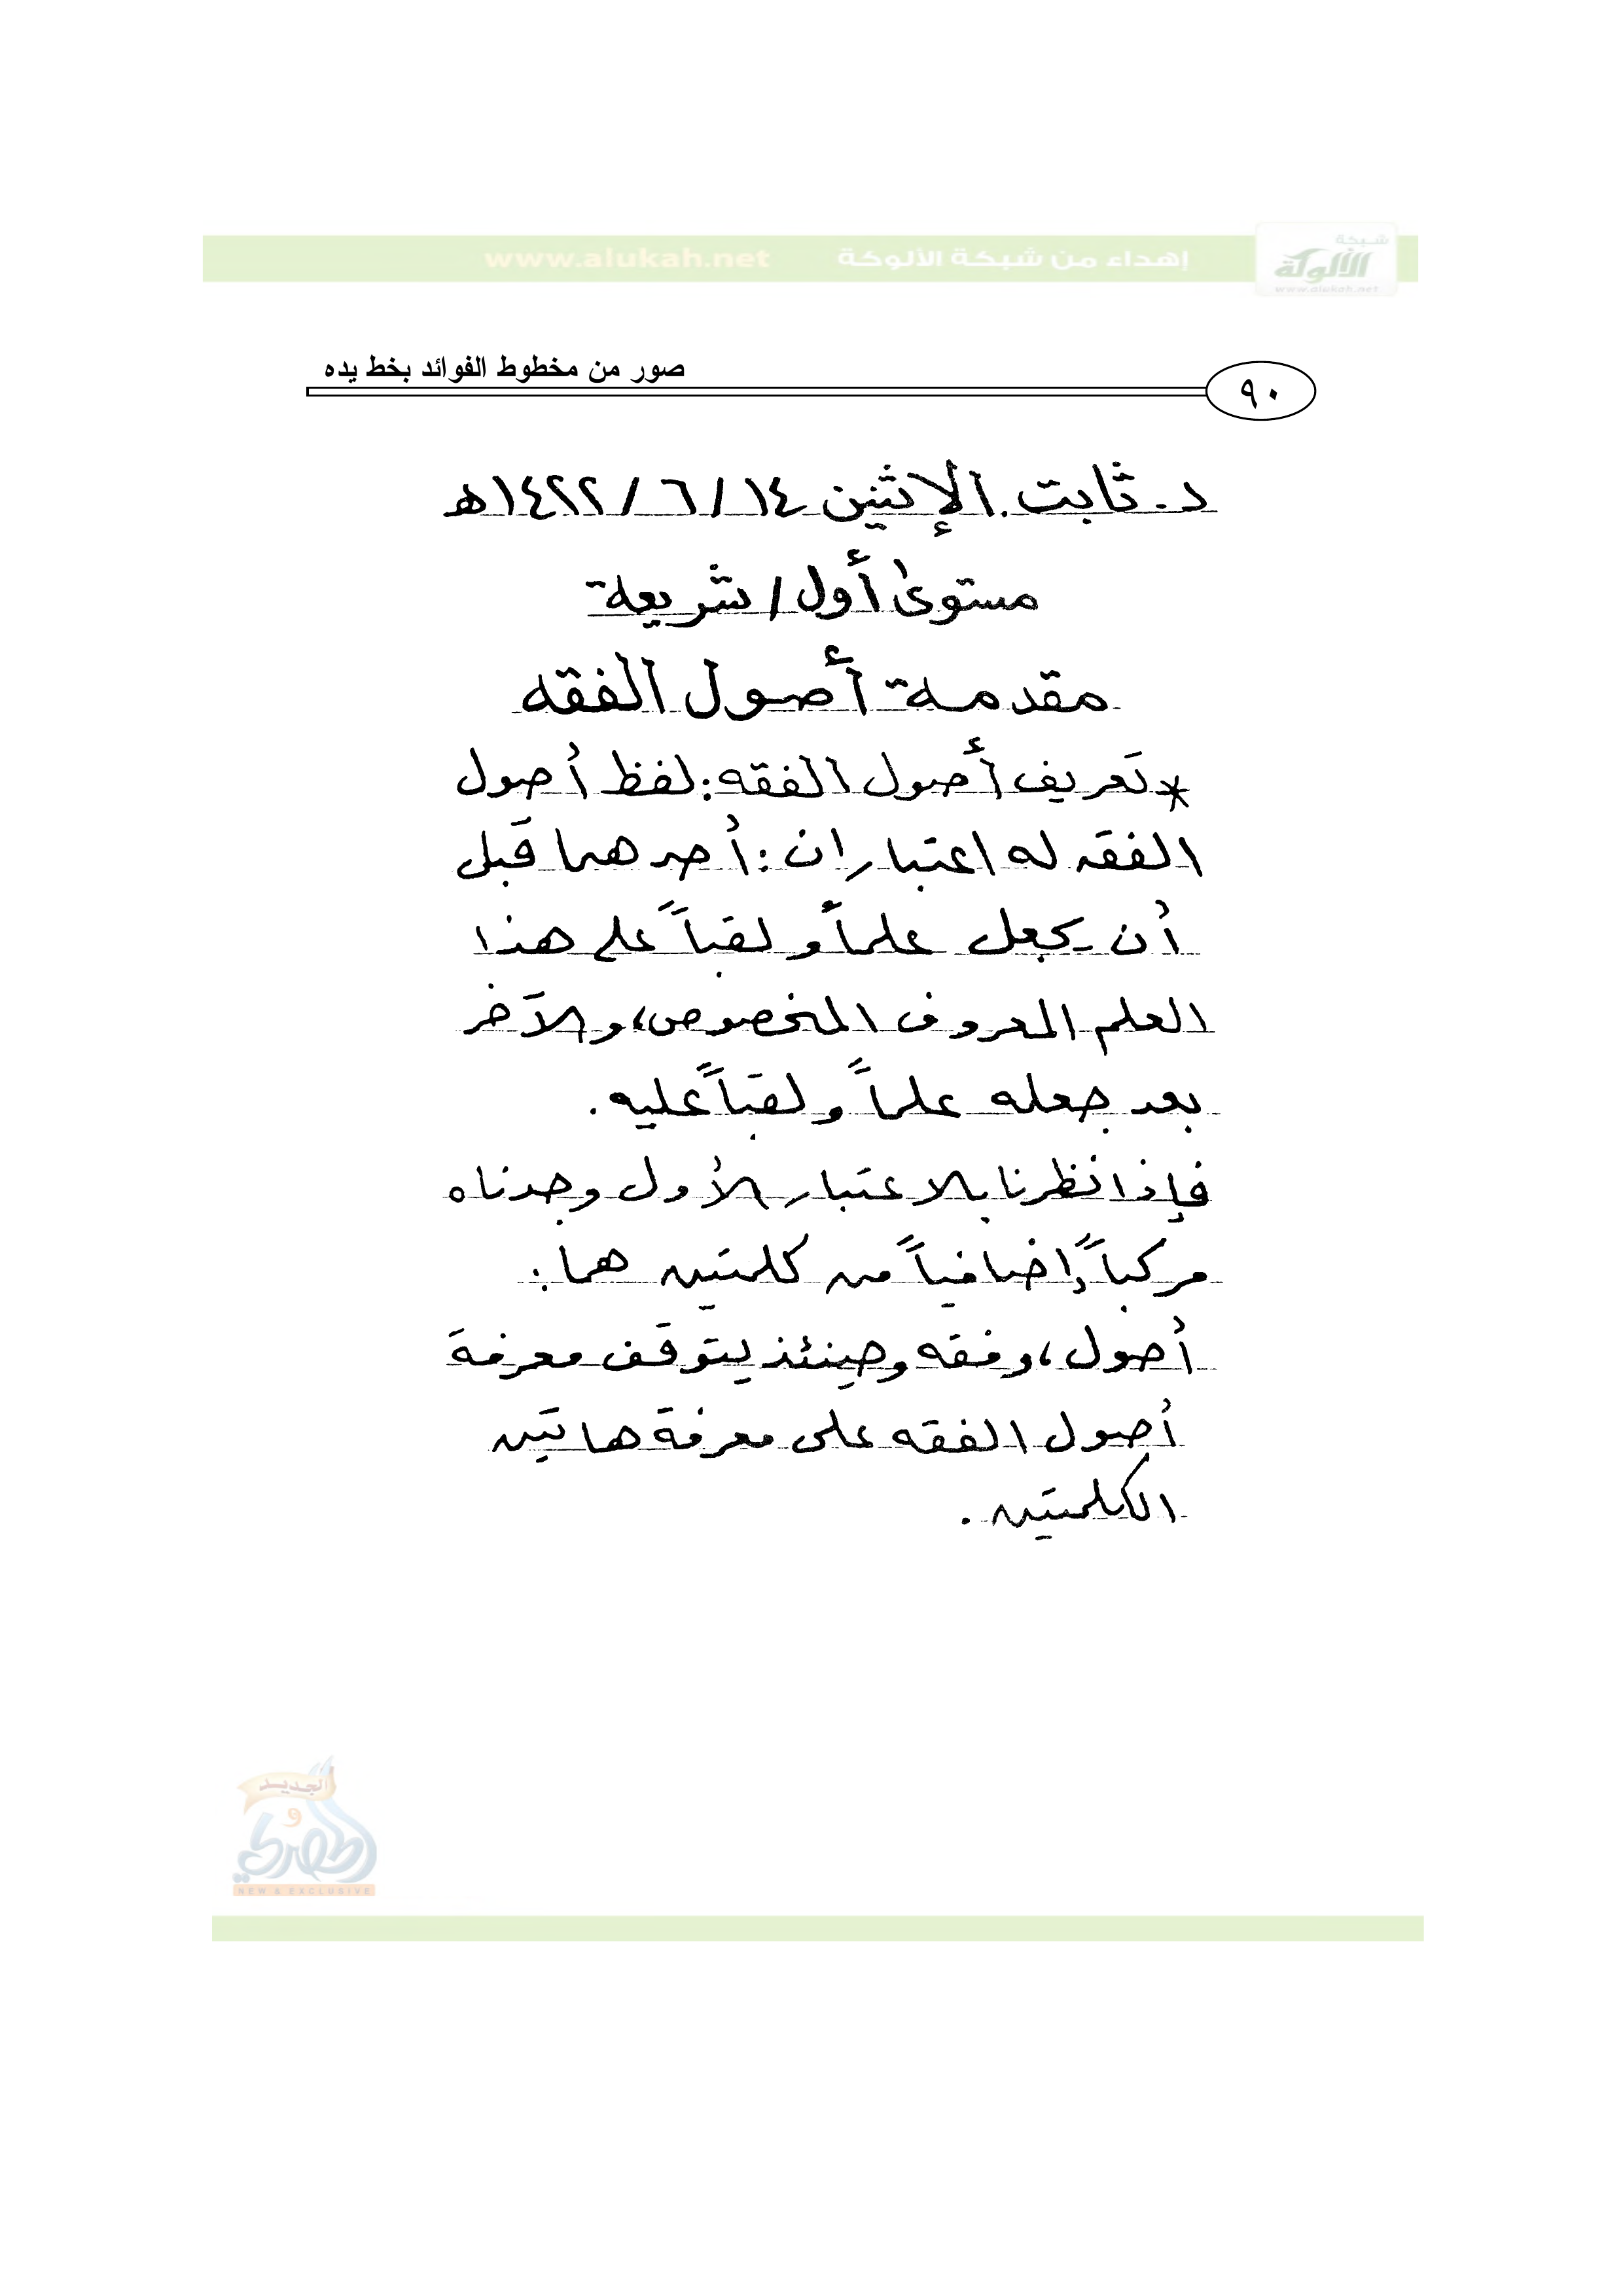 إهداء من شبكة الألوكة www.alukah.net
شبكة
الألوكة
www.alukah.net
صور من مخطوط الفوائد بخط يده
٩٠
د. ثابت. الإثنين ١٤ / ٦ / ١٤٢٢هـ
مستوى أول / شريعة
مقدمة أصول الفقه
* تعريف أصول الفقه: لفظ أصول
الفقه له اعتباران: أحدهما قبل
أن يجعل علماً و لقباً على هذا
العلم المعروف المخصوص، والآخر
بعد جعله علماً ولقباً عليه.
فإذا نظرنا بالاعتبار الأول وجدناه
مركباً إضافياً من كلمتين هما:
أصول، وفقه وحينئذ يتوقف معرفة
أصول الفقه على معرفة هاتين
الكلمتين.
الجديد
و
الحصري
NEW & EXCLUSIVE